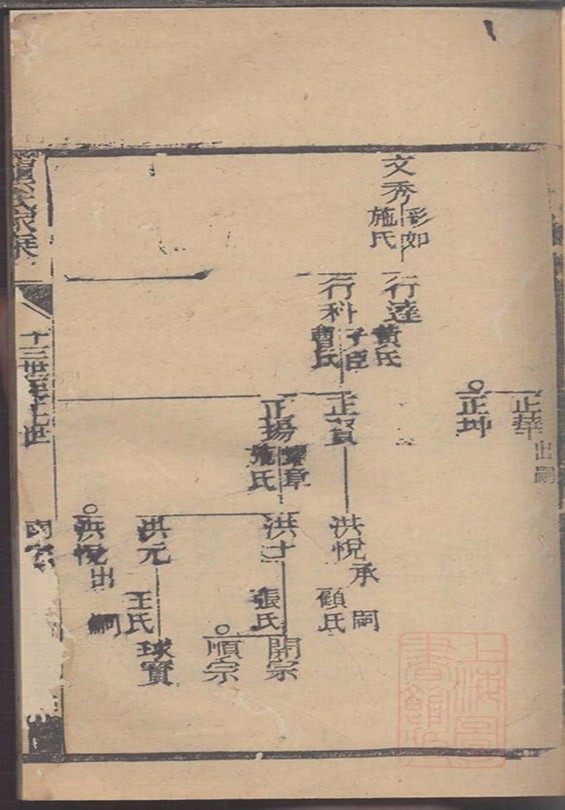 正華
出嗣
正坤
文秀
彩如
施氏
行達
黃氏
行科
子臣
曹氏
正賓
正揚
耀章
施氏
洪悅
承嗣
顧氏
洪士
張氏
洪元
王氏
洪悅
出嗣
開宗
順宗
球寶
氏家乘
十三世至十七世
上海圖書館藏